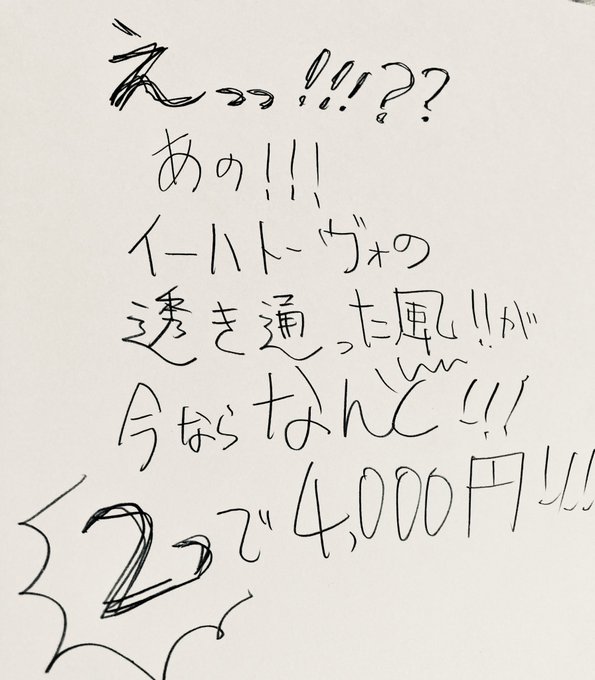 えっっ!!!??
あの!!!
イーハトーヴォの
透き通った風!!が
今ならなんと!!!
2つで4,000円!!!